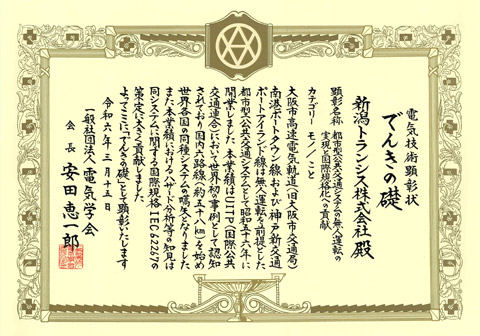 電気技術顕彰状
でんきの礎
新潟トランシス株式会社 殿
顕彰名称 都市型公共交通システムの無人運転の
実現と国際規格化への貢献
カテゴリー モノ／こと
大阪市高速電気軌道（旧大阪市交通局）
南港ポートタウン線および神戸新交通
ポートアイランド線は無人運転を前提とした
都市型公共交通システムとして昭和五十六年に
開業しました 本業績はUITP（国際公共
交通連合）において世界初の事例として認知
されており国内六路線（約五十八km）を始め
世界各国の同種システムの嚆矢となりました
また本業績におけるハザード分析等の知見は
同システムに関する国際規格IEC62267の
策定に大きく貢献しました
よってここに「でんきの礎」として顕彰いたします
令和六年三月十五日
一般社団法人 電気学会
会長 安田恵一郎